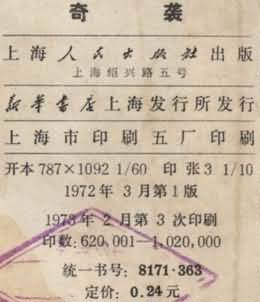 奇袭
上海人民出版社出版
上海绍兴路五号
新华书店上海发行所发行
上海市印刷五厂印刷
开本787×1092 1/60 印张3 1/10
1972年3月第1版
1973年2月第3次印刷
印数:620,001—1,020,000
统一书号:8171·363
定价:0.24元